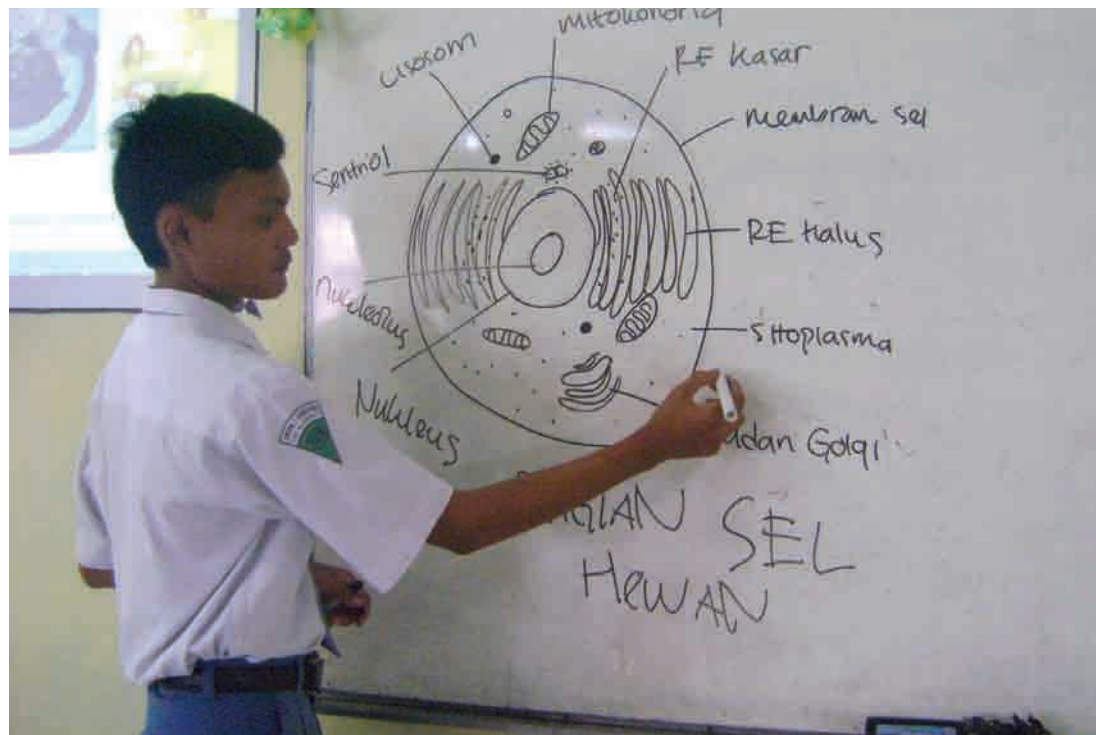 mitokondria
Lisosom
RE Kasar
membran sel
Sentriol
RE Halus
Nukleolus
Sitoplasma
Nukleus
adan Golgi
SEL
HEWAN